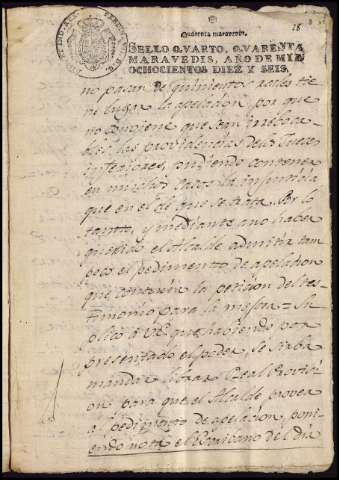 Quarenta maravedis.
18
SELLO QVARTO, QVARENTA
MARAVEDIS, AÑO DE MIL
OCHOCIENTOS DIEZ Y SEIS.
no pasan de quinientos reales tie
ne lugar la apelacion, por que
no conviene que sean irreboca
bles las providencias de los Jueces
inferiores, pudiendo contener
en muchos casos la injusticia
que en el de que se trata. Por lo
tanto, y mediante a no haver
querido el Alcalde admitir tam
poco el pedimento de apelacion
que contenia la peticion del tes
timonio para la mejora = Su
plico a V.E. que haviendo por
presentado el poder, se sirba
mandar librar Real Provisi
on para que el Alcalde provea
a el pedimento de apelacion, poni
endo nota el Escribano del dia